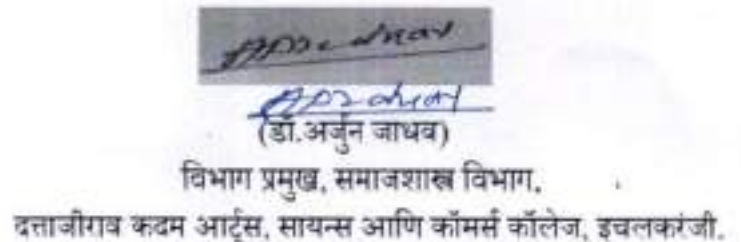 (डॉ.अर्जुन जाधव)
विभाग प्रमुख, समाजशास्त्र विभाग,
दत्ताजीराव कदम आर्ट्स, सायन्स आणि कॉमर्स कॉलेज, इचलकरंजी.